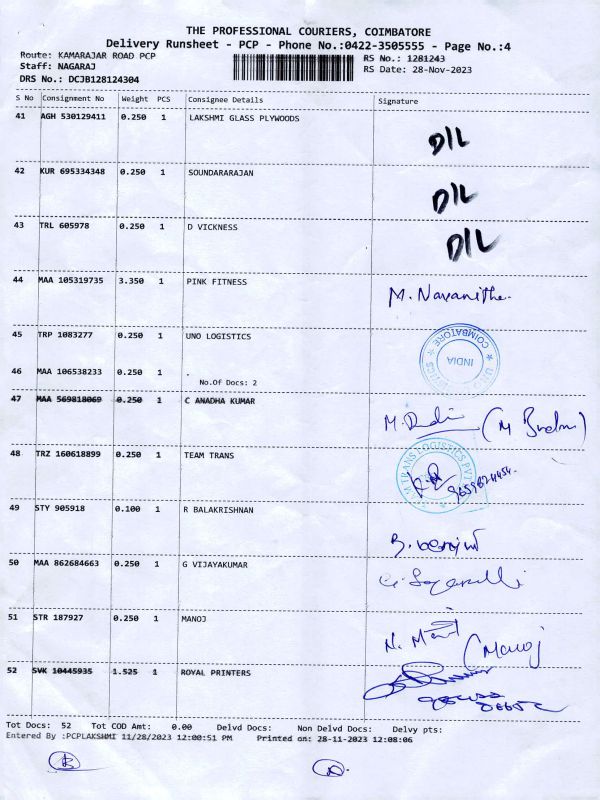 THE PROFESSIONAL COURIERS, COIMBATORE
Delivery Runsheet - PCP - Phone No.:0422-3505555 - Page No.:4
Route: KAMARAJAR ROAD PCP
Staff: NAGARAJ
DRS No.: DCJB128124304
RS No.: 1281243
RS Date: 28-Nov-2023
S No Consignment No Weight PCS Consignee Details Signature
41 AGH 530129411 0.250 1 LAKSHMI GLASS PLYWOODS D/L
42 KUR 695334348 0.250 1 SOUNDARARAJAN D/L
43 TRL 605978 0.250 1 D VICKNESS D/L
44 MAA 105319735 3.350 1 PINK FITNESS M. Navanitha.
45 TRP 1083277 0.250 1 UNO LOGISTICS
COIMBATORE
INDIA
46 MAA 106538233 0.250 1 .
No.Of Docs: 2
47 MAA 569818069 0.250 1 C ANADHA KUMAR
48 TRZ 160618899 0.250 1 TEAM TRANS
TRANS LOGISTICS PVT
49 STY 905918 0.100 1 R BALAKRISHNAN
50 MAA 862684663 0.250 1 G VIJAYAKUMAR
51 STR 187927 0.250 1 MANOJ
(Manoj
52 SVK 10445935 1.525 1 ROYAL PRINTERS
Tot Docs: 52 Tot COD Amt: 0.00 Delvd Docs: Non Delvd Docs: Delvy pts:
Entered By :PCPLAKSHMI 11/28/2023 12:00:51 PM Printed on: 28-11-2023 12:08:06